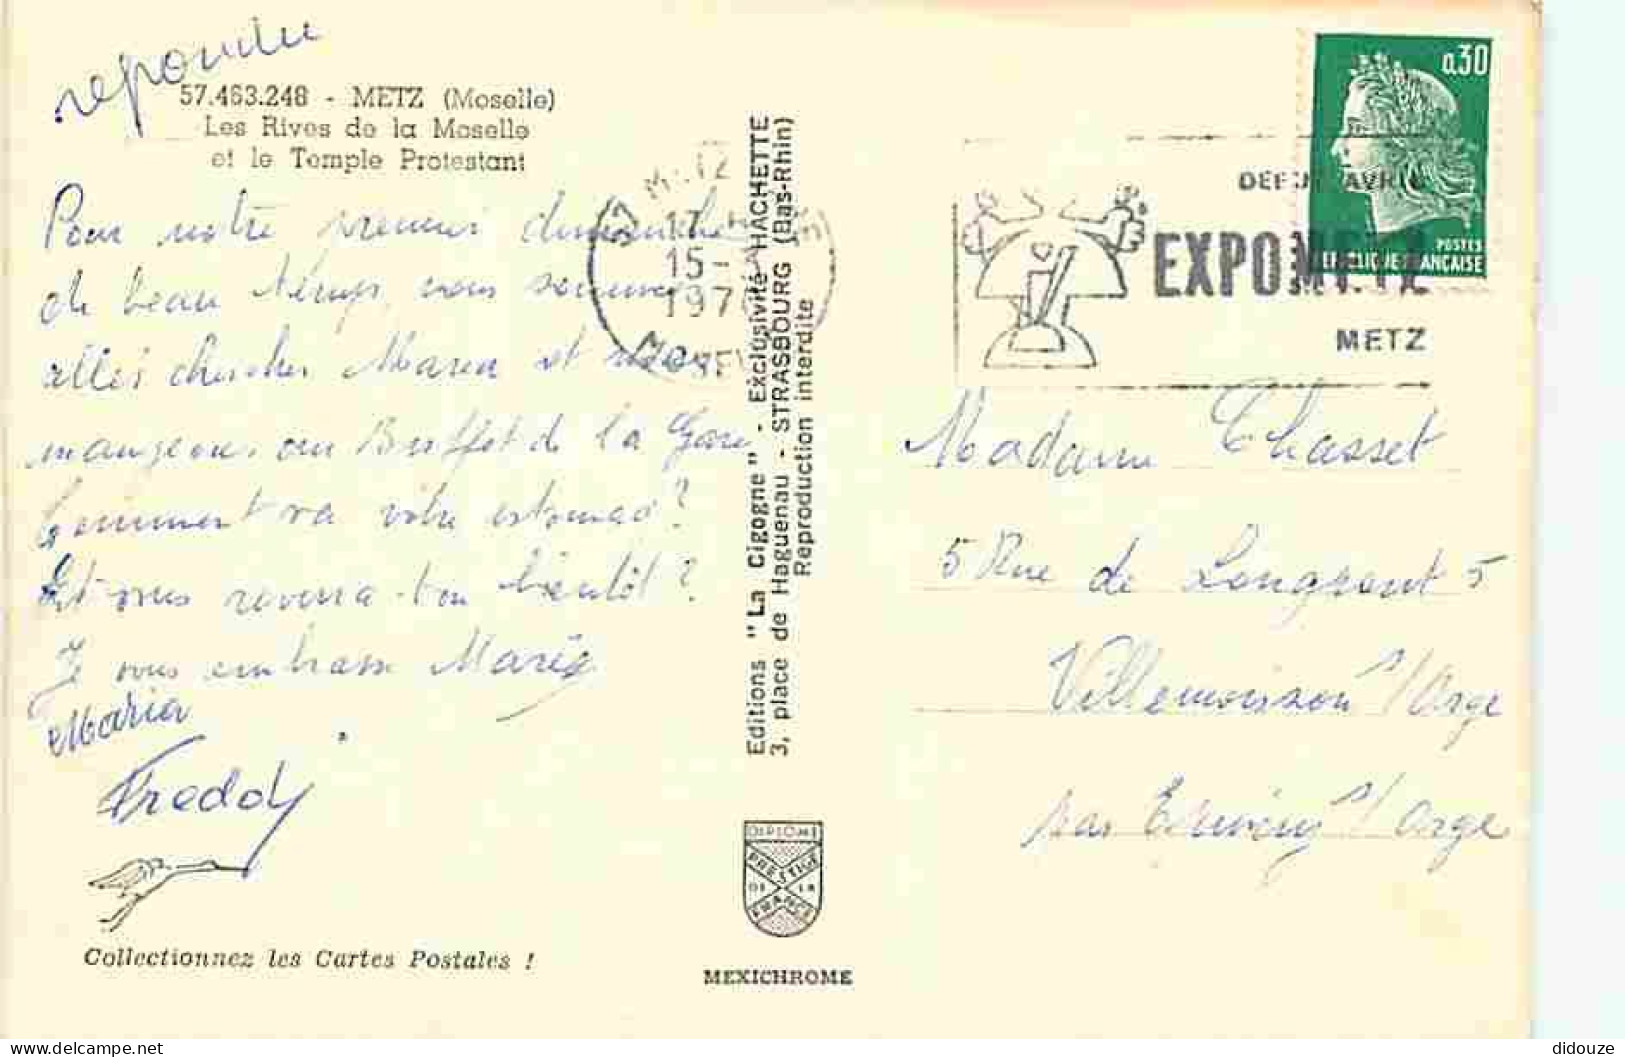 repondu
57.463.248 - METZ (Moselle)
Les Rives de la Moselle
et le Temple Protestant
Pour notre premier dimanche
de beau temps, nous sommes
allés chercher Maria et nous
mangeons au Buffet de la Gare
Comment va votre estomac ?
Et vous reverra-t-on bientôt ?
Je vous embrasse
Maria
Freddy
Collectionnez les Cartes Postales !
Editions "La Cigogne" - Exclusivité HACHETTE
3, place de Haguenau - STRASBOURG (Bas-Rhin)
Reproduction interdite
DIPLOME
PRESTIGE
DE LA
FRANCE
MEXICHROME
METZ
17
15-
197
MOSELLE
0,30
POSTES
REPUBLIQUE FRANÇAISE
DEBUT AVRIL
EXPOMETZ
METZ
Madame Chasset
5 Rue de Longpont 5
Villemoisson s/Orge
par s/Orge
didouze
delcampe.net